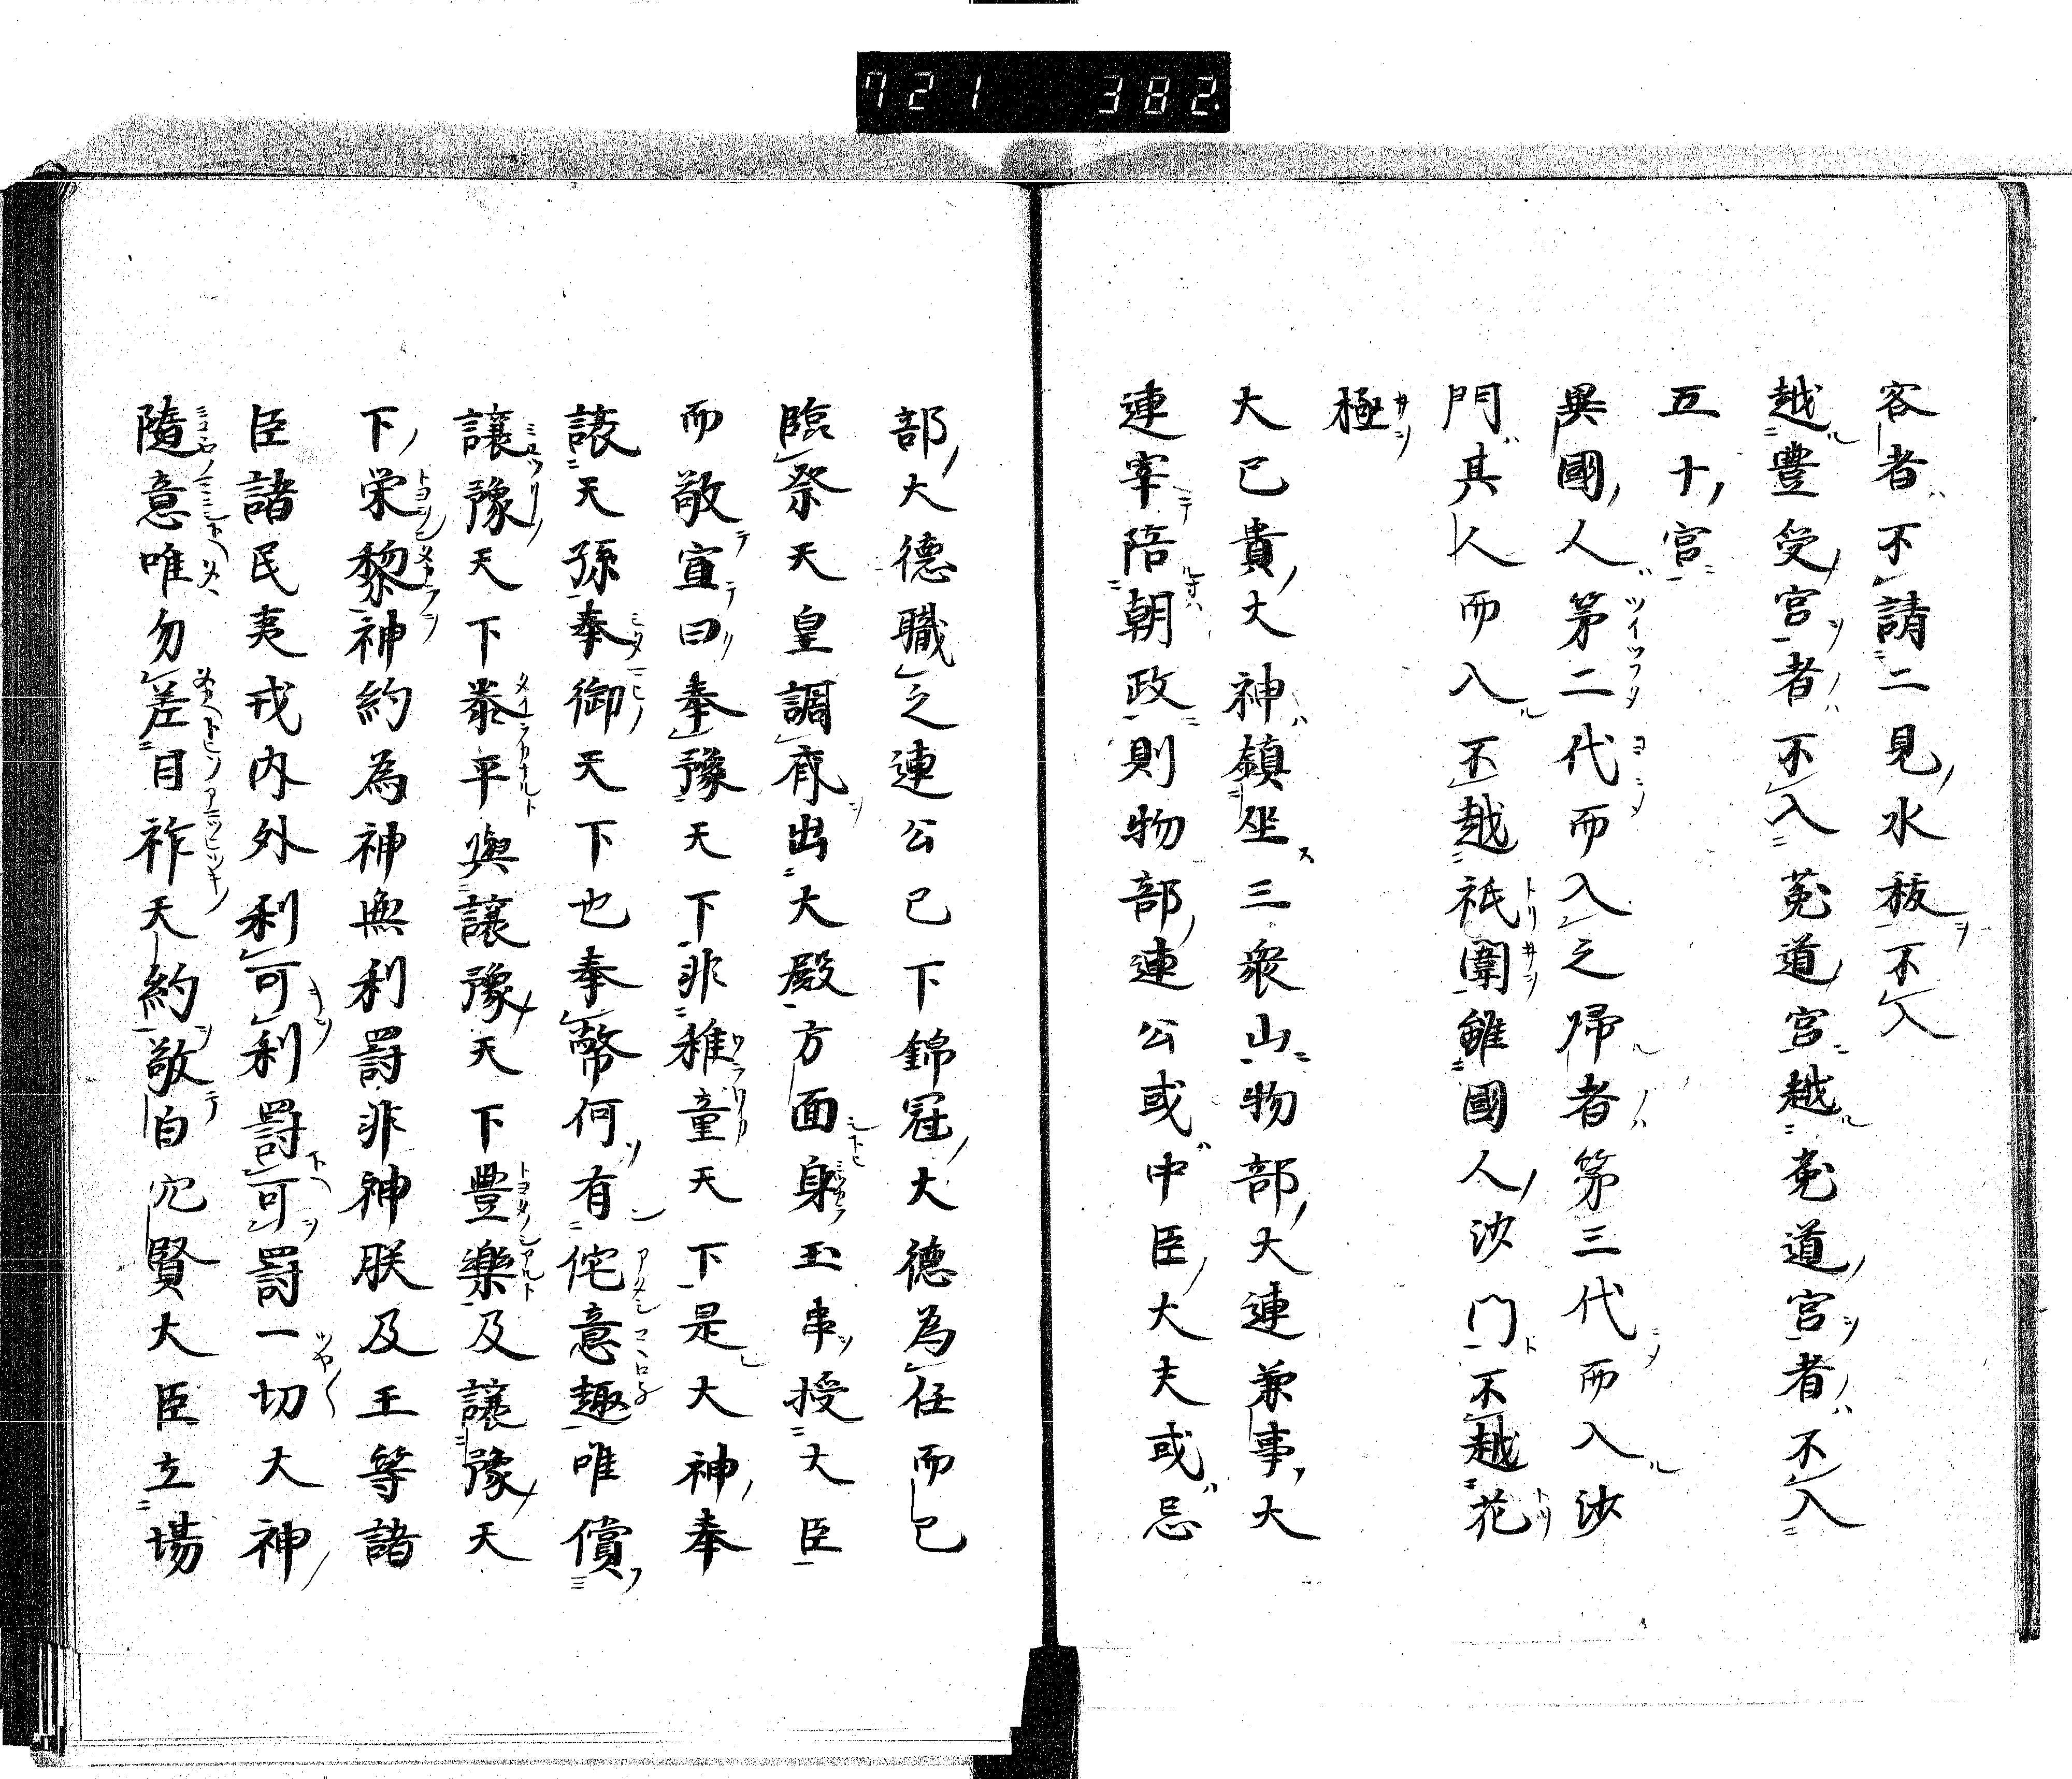 721 382
客者不請二見水秡不入
越豐受宮者不入菟道宮越菟道宮者不入
五十宮
異國人第二代而入之歸者第三代而入沙
門其人而入不越祇圍雖國人沙门不越花
極
大已貴大神鎮坐三衆山物部大連兼事大
連宰陪朝政則物部連公或中臣大夫或忌
部大德職之連公已下錦冠大德為任而已
臨祭天皇調有出大殿方面身玉串授大臣
而敬宣曰奉豫天下非稚童天下是大神奉
讓天孫奉御天下也奉幣何有侘意趣唯償
讓豫天下泰平與讓豫天下豐樂及讓豫天
下栄黎神約為神無利罸非神朕及王等諸
臣諸民夷戎内外利可利罸可罸一切大神
隨意唯勿差目祚天約敬自賢大臣立場